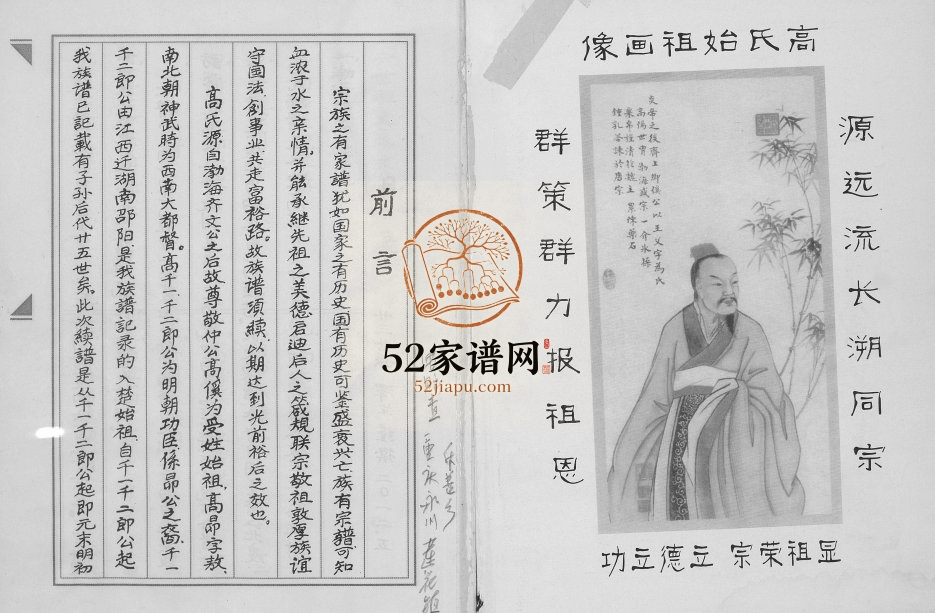 高氏始祖画像
源远流长溯同宗
群策群力报祖恩
显祖荣宗 立德立功
炎帝之後齊上卿傒公以王父字為氏
前言
宗族之有家譜犹如国家之有历史国有历史可鉴盛衰兴亡族有宗譜可知
血浓于水之亲情。并能承継先祖之美德启迪后人之箴規联宗敬祖敦厚族谊
守国法創事业共走富裕路。故族谱须续以期达到光前裕后之效也。
高氏源自渤海齐文公之后故尊敬仲公高傒为受姓始祖。高昂字敖
南北朝神武時为西南大都督。高千一、千二郎公为明朝功臣係昴公之裔。千一
千二郎公由江西迁湖南邵阳是我族譜記录的入楚始祖。自千一千二郎公起
我族譜已記載有子孙后代廿五世矣。此次续譜是从千一千二郎公起即元末明初
52家谱网
52jiapu.com